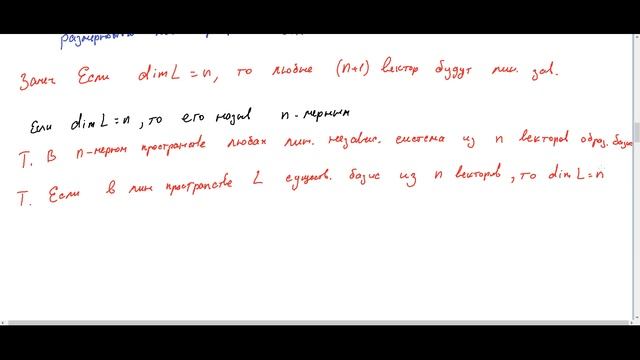 Замеч Если dim L = n, то любые (n+1) вектор будут лин. зав.
Если dim L = n, то его назыв n-мерным
Т. В n-мерном пространстве любая лин. независ. система из n векторов образ. базис
Т. Если в лин пространстве L существ. базис из n векторов, то dim L = n